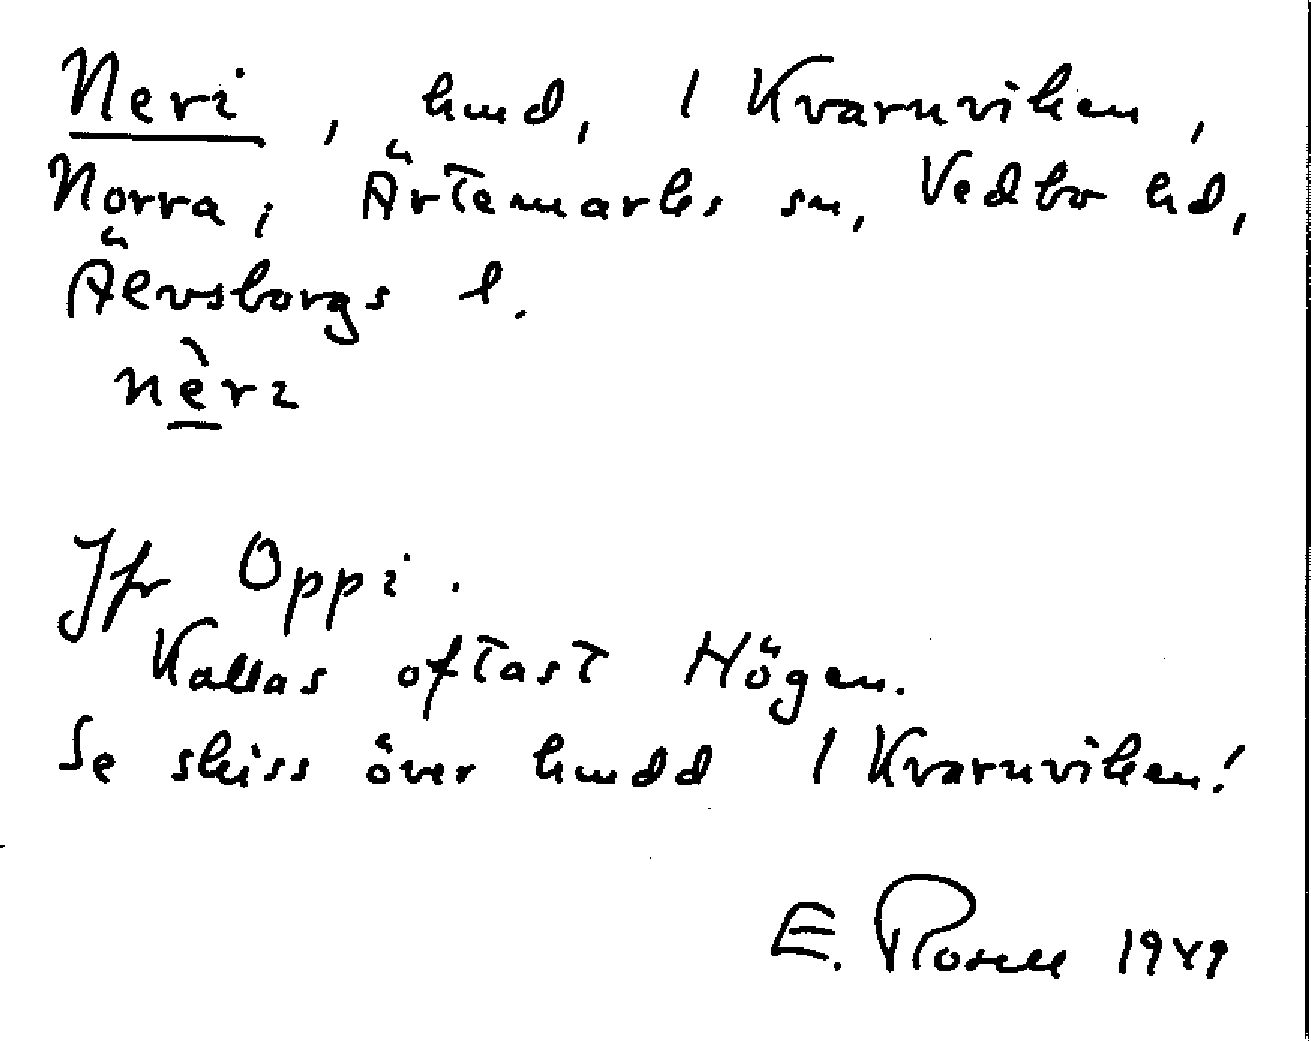 Neri, hmd, 1 Kvarnviken,
Norra, Ärtemarks sn, Vedbo hd,
Älvsborgs l.
nèrɩ
Jfr Oppi.
Kallas oftast Högen.
Se skiss över hmdd 1 Kvarnviken!
E. Rosell 1949